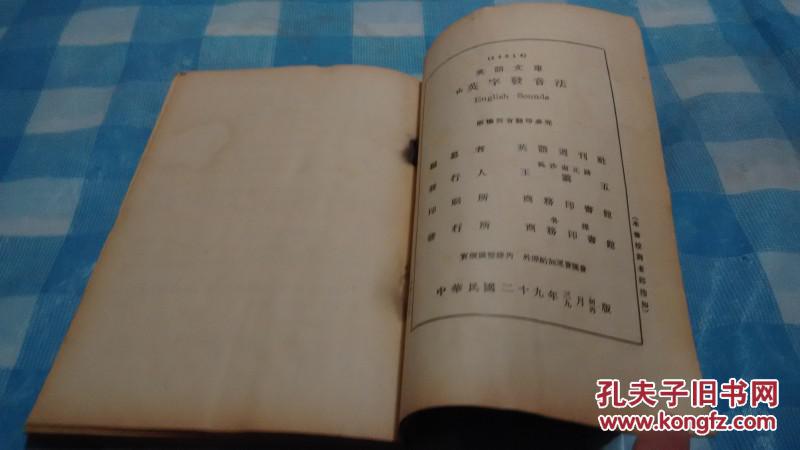 英語文庫
英字發音法
English Sounds
版權所有翻印必究
編纂者 英語週刊社
長沙南正路
發行人 王雲五
印刷所 商務印書館
各埠
發行所 商務印書館
中華民國二十九年三月初版
九月再
孔夫子旧书网
kongfz.com